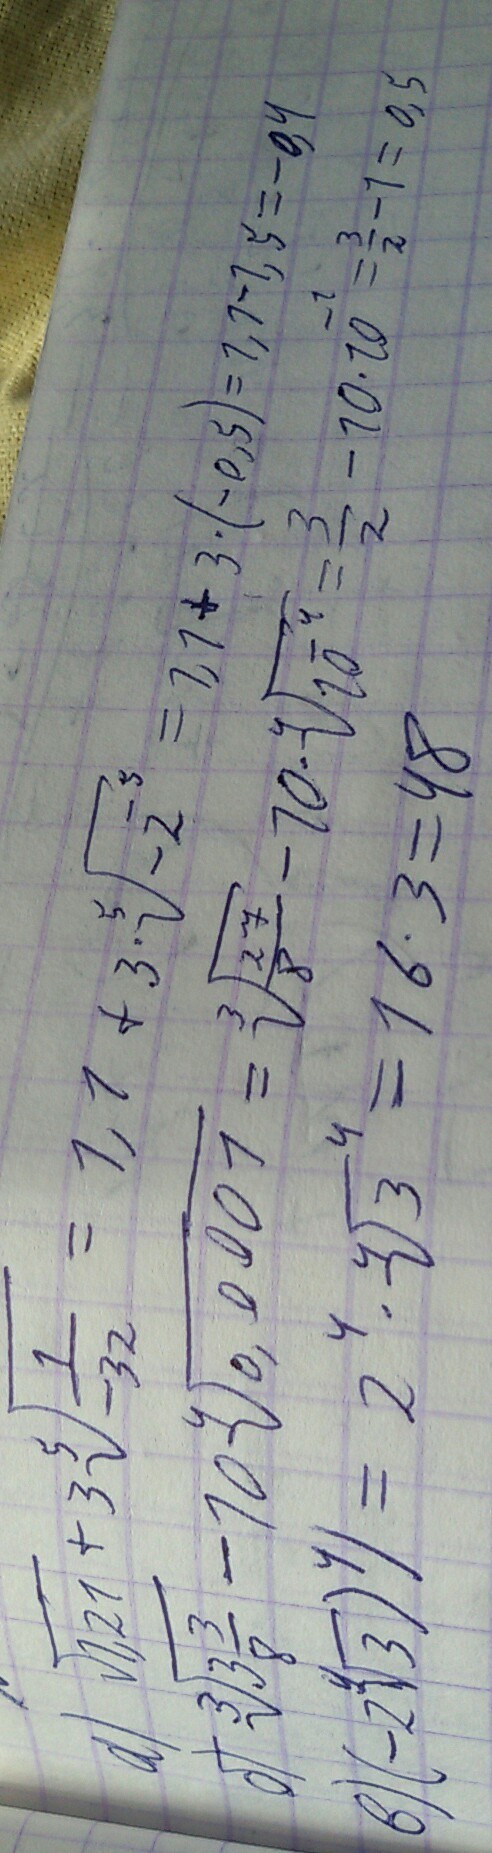 а) √1,21 + 3 ⁵√(1/-32) = 1,1 + 3·⁵√(-2⁻⁵) = 1,1 + 3·(-0,5) = 1,1-1,5 = -0,4
б) ³√(3 3/8) - 10 ⁴√0,0001 = ³√(27/8) - 10·⁴√(10⁻⁴) = 3/2 - 10·10⁻¹ = 3/2 - 1 = 0,5
в) (-2 ⁴√3)⁴) = 2⁴·⁴√3⁴ = 16·3 = 48